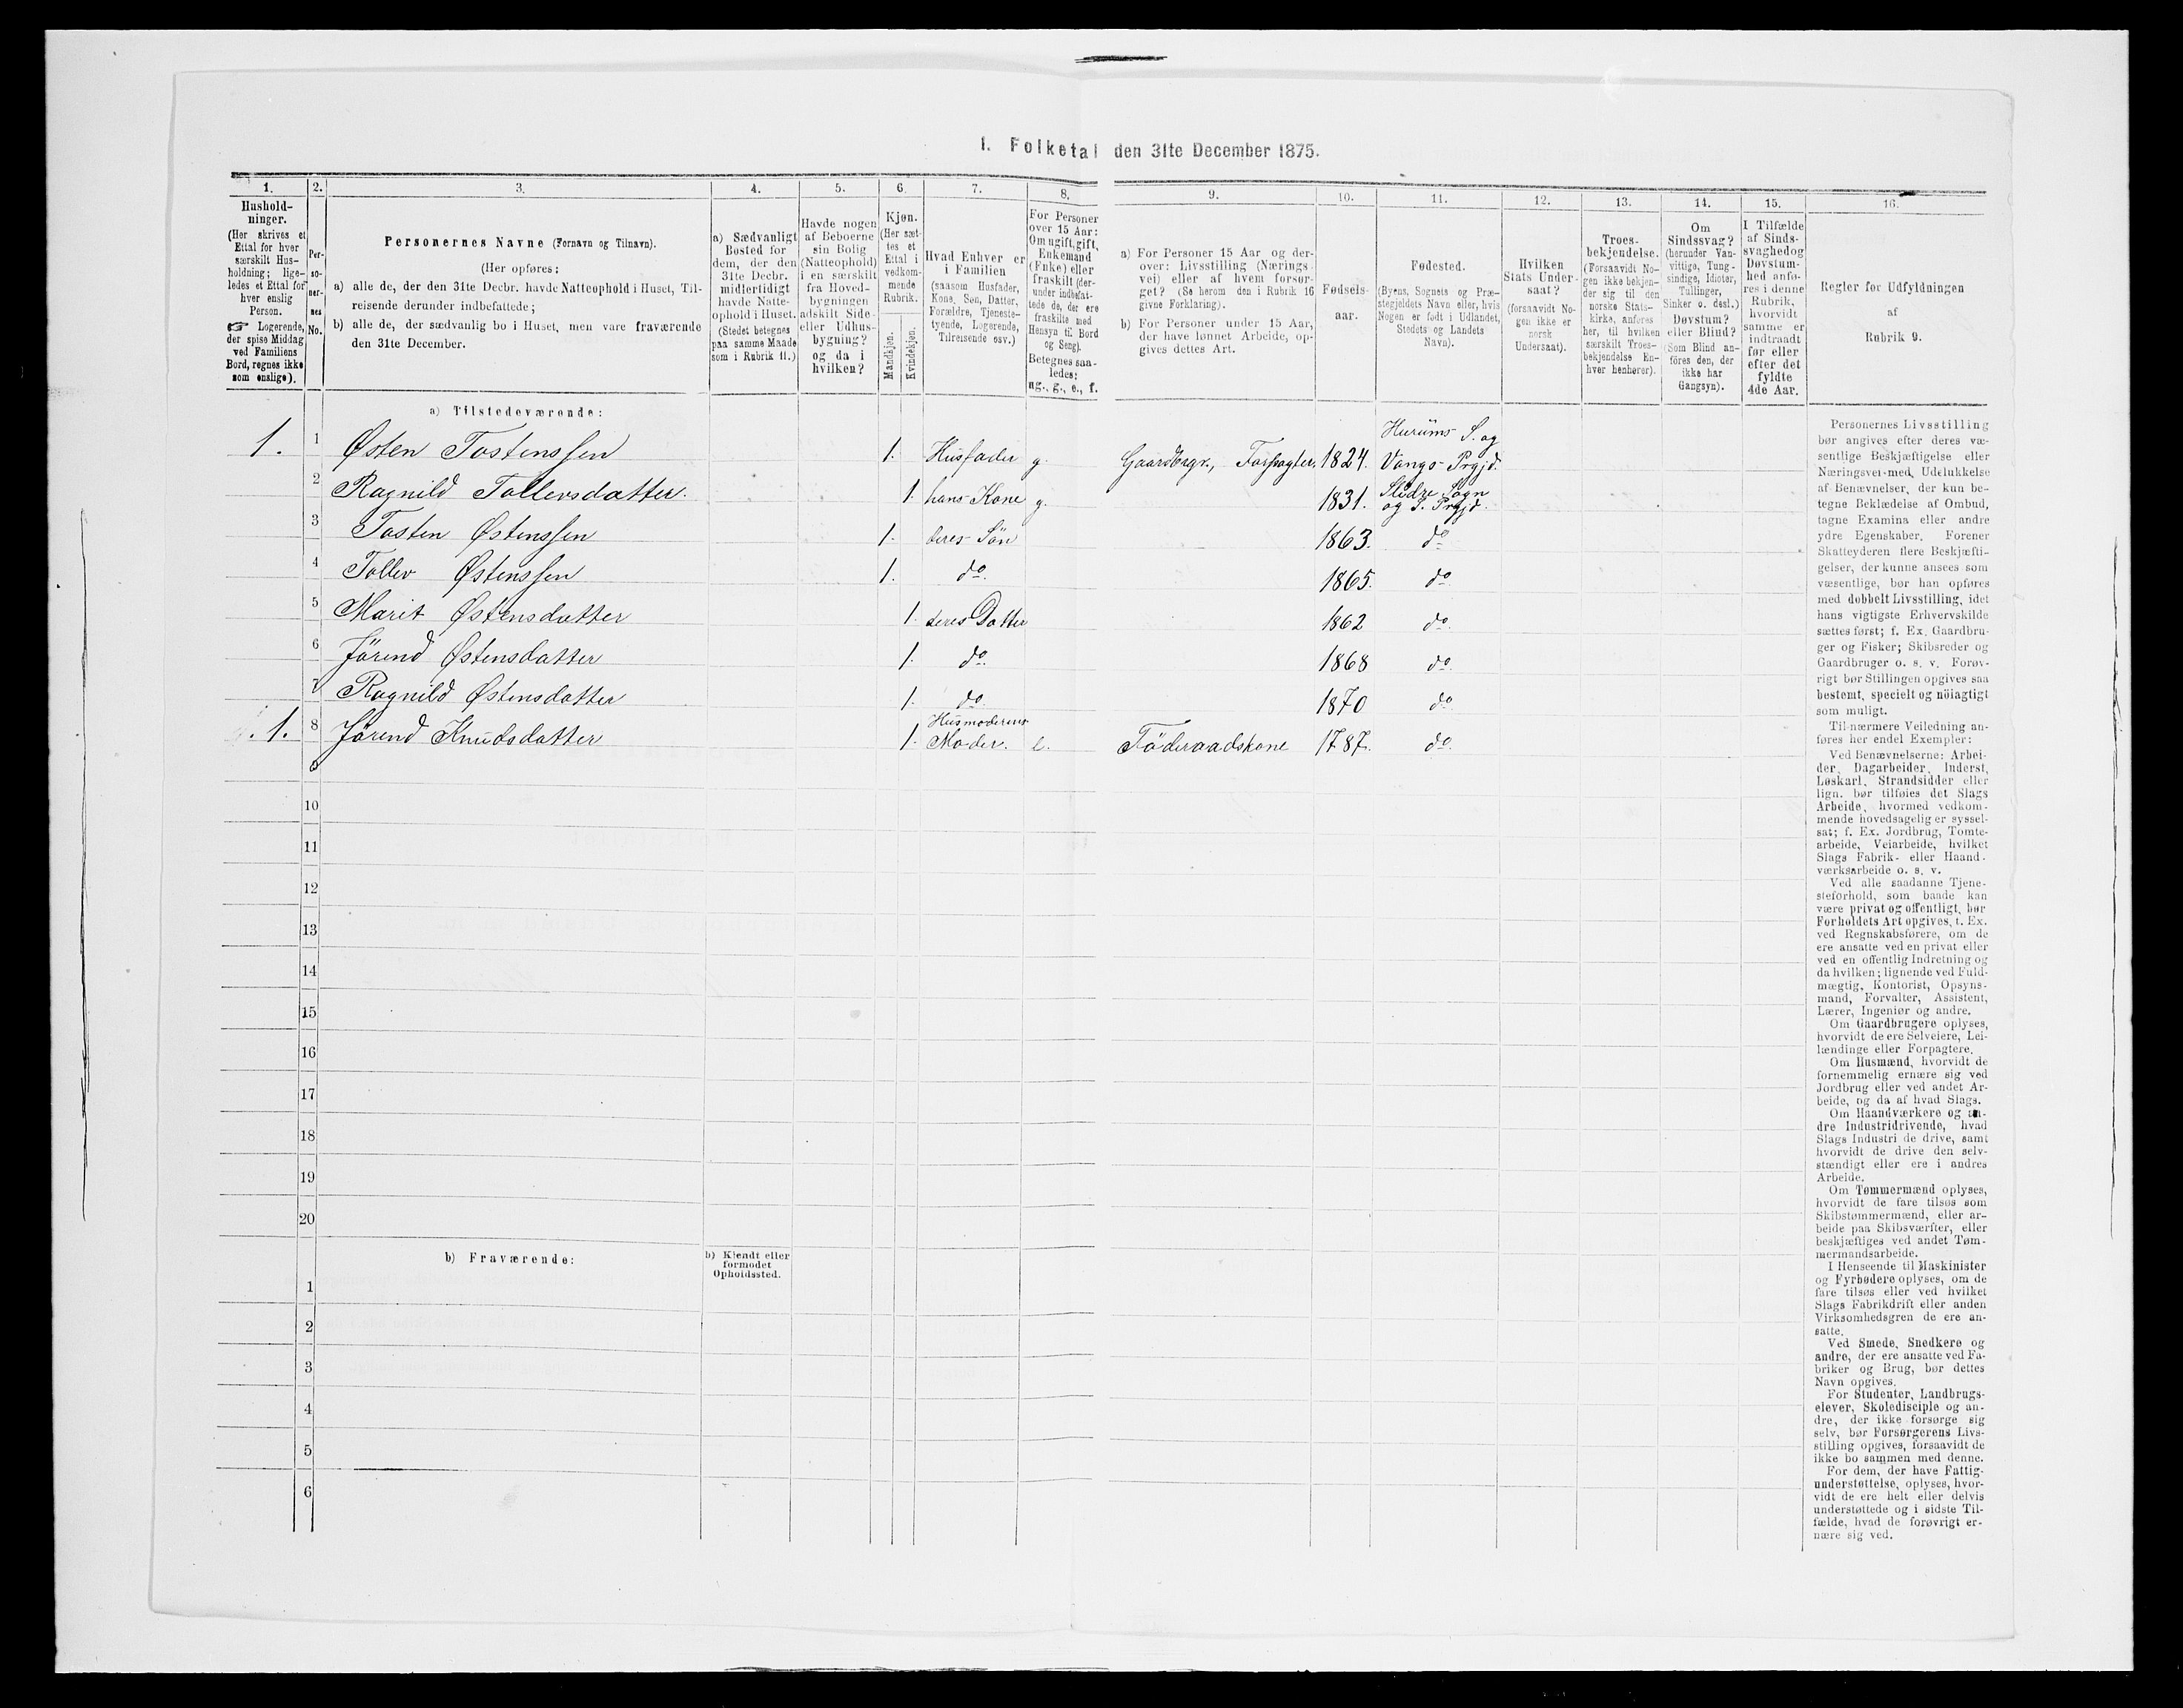 I. Folketal den 31te December 1875.
1. 2. 3. 4. 5. 6. 7. 8. 9. 10. 11. 12. 13. 14. 15. 16.
Hushold-
ninger.
(Her skrives et
Ettal for hver
særskilt Hus-
holdning; lige-
ledes et Ettal for
hver enslig
Person.
☞ Logerende,
der spise Middag
ved Familiens
Bord, regnes ikke
som enslige).
Per-
so-
ner-
nes
No.
Personernes Navne (Fornavn og Tilnavn).
(Her opføres:
a) alle de, der den 31te Decbr. havde Natteophold i Huset, Til-
reisende derunder indbefattede;
b) alle de, der sædvanlig bo i Huset, men vare fraværende
den 31te December.
a) Sædvanligt
Bosted for
dem, der den
31te Decbr.
midlertidigt
havde Natte-
ophold i Huset.
(Stedet betegnes
paa samme Maade
som i Rubrik 11.)
Havde nogen
af Beboerne
sin Bolig
(Natteophold)
i en særskilt
fra Hoved-
bygningen
adskilt Side-
eller Udhus-
bygning?
og da i
hvilken?
Kjøn.
(Her sæt-
tes et
Ettal i
vedkom-
mende
Rubrik.
Mandkjøn.
Kvindekjøn.
Hvad Enhver er
i Familien
(saasom Husfader,
Kone, Søn, Datter,
Forældre, Tjeneste-
tyende, Logerende,
Tilreisende osv.)
For Personer
over 15 Aar:
Om ugift, gift,
Enkemand
(Enke) eller
fraskilt (der-
under indbefat-
tede de, der ere
fraskilte med
Hensyn til Bord
og Seng).
Betegnes saa-
ledes:
ug., g., e., f.
a) For Personer 15 Aar og der-
over: Livsstilling (Nærings-
vei) eller af hvem forsør-
get? (Se herom den i Rubrik 16
givne Forklaring).
b) For Personer under 15 Aar,
der have lønnet Arbeide, op-
gives dettes Art.
Fødsels-
aar.
Fødested.
(Byens, Sognets og Præ-
stegjeldets Navn eller, hvis
Nogen er født i Udlandet,
Stedets og Landets
Navn).
Hvilken
Stats Under-
saat?
(forsaavidt No-
gen ikke er
norsk
Undersaat).
Troes-
bekjendelse.
(Forsaavidt No-
gen ikke bekjen-
der sig til den
norske Stats-
kirke, anføres
her, til hvilken
særskilt Troes-
bekjendelse En-
hver henhører).
Om
Sindssvag?
(herunder Van-
vittige, Tung-
sindige, Idioter,
Tullinger,
Sinker o. desl.)
Døvstum?
eller Blind?
(Som Blind an-
føres den, der
ikke har
Gangsyn).
I Tilfælde
af Sinds-
svaghed og
Døvstum-
hed anfø-
res i denne
Rubrik,
hvorvidt
samme er
indtraadt
før eller
efter det
fyldte
4de Aar.
Regler for Udfyldningen
af
Rubrik 9.
a) Tilstedeværende:
1. 1 Østen Tostenssen 1. Husfader g. Gaardbrgr., Forpagter. 1824. Hurums S. og Vangs Prgjd.
2 Ragnild Tollevsdatter. 1. hans Kone g. 1831. Slidre Sogn og S. Prgjd.
3 Tosten Østenssen 1. deres Sön 1863. do
4 Tollev Østenssen 1. do. 1865. do.
5 Marit Østensdatter 1. deres Datter 1862 do.
6 Jörend Østensdatter 1. do. 1868 do.
7 Ragnild Østensdatter 1. do. 1870 do.
1. 8 Jörend Knudsdatter 1. Husmoderens Moder. e. Föderaadskone 1787. do.
9
10
11
12
13
14
15
16
17
18
19
20
b) Fraværende:
b) Kjendt eller
formodet
Opholdssted.
1
2
3
4
5
6
Personernes Livsstilling
bør angives efter deres væ-
sentlige Beskjæftigelse eller
Næringsvei med Udelukkelse
af Benævnelser, der kun be-
tegne Beklædelse af Ombud,
tagne Examina eller andre
ydre Egenskaber. Forener
Skatteyderen flere Beskjæfti-
gelser, der kunne ansees som
væsentlige, bør han opføres
med dobbelt Livsstilling, idet
hans vigtigste Erhvervskilde
sættes først; f. Ex. Gaardbru-
ger og Fisker; Skibsreder og
Gaardbruger o. s. v. Forøv-
rigt bør Stillingen opgives saa
bestemt, specielt og nöiagtigt
som muligt.
Til nærmere Veiledning an-
føres her endel Exempler:
Ved Benævnelserne: Arbei-
der, Dagarbeider, Inderst,
Løskarl, Strandsidder eller
lign. bør tilføies det Slags
Arbeide, hvormed vedkom-
mende hovedsagelig er syssel-
sat; f. Ex. Jordbrug, Tomte-
arbeide, Veiarbeide, hvilket
Slags Fabrik- eller Haand-
værksarbeide o. s. v.
Ved alle saadanne Tjene-
steforhold, som baade kan
være privat og offentligt, bør
Forholdets Art opgives, t. Ex.
ved Regnskabsførere, om de
ere ansatte ved en privat eller
ved en offentlig Indretning og
da hvilken; lignende ved Fuld-
mægtig, Kontorist, Opsyns-
mand, Forvalter, Assistent,
Lærer, Ingeniør og andre.
Om Gaardbrugere oplyses,
hvorvidt de ere Selveiere, Lei-
lændinge eller Forpagtere.
Om Husmænd, hvorvidt de
fornemmelig ernære sig ved
Jordbrug eller ved andet Ar-
beide, og da af hvad Slags.
Om Haandværkere og an-
dre Industridrivende, hvad
Slags Industri de drive, samt
hvorvidt de drive den selv-
stændigt eller ere i andres
Arbeide.
Om Tømmermænd oplyses,
hvorvidt de fare tilsøs som
Skibstømmermænd, eller ar-
beide paa Skibsværfter, eller
beskjæftiges ved andet Tøm-
mermandsarbeide.
I Henseende til Maskinister
og Fyrbødere oplyses, om de
fare tilsøs eller ved hvilket
Slags Fabrikdrift eller anden
Virksomhedsgren de ere an-
satte.
Ved Smede, Snedkere og
andre, der ere ansatte ved Fa-
briker og Brug, bør dettes
Navn opgives.
For Studenter, Landbrugs-
elever, Skoledisciple og an-
dre, der ikke forsørge sig
selv, bør Forsørgerens Livs-
stilling opgives, forsaavidt de
ikke bo sammen med denne.
For dem, der have Fattig-
understøttelse, oplyses, hvor-
vidt de ere helt eller delvis
understøttede og i sidste Til-
fælde, hvad de forøvrigt er-
nære sig ved.